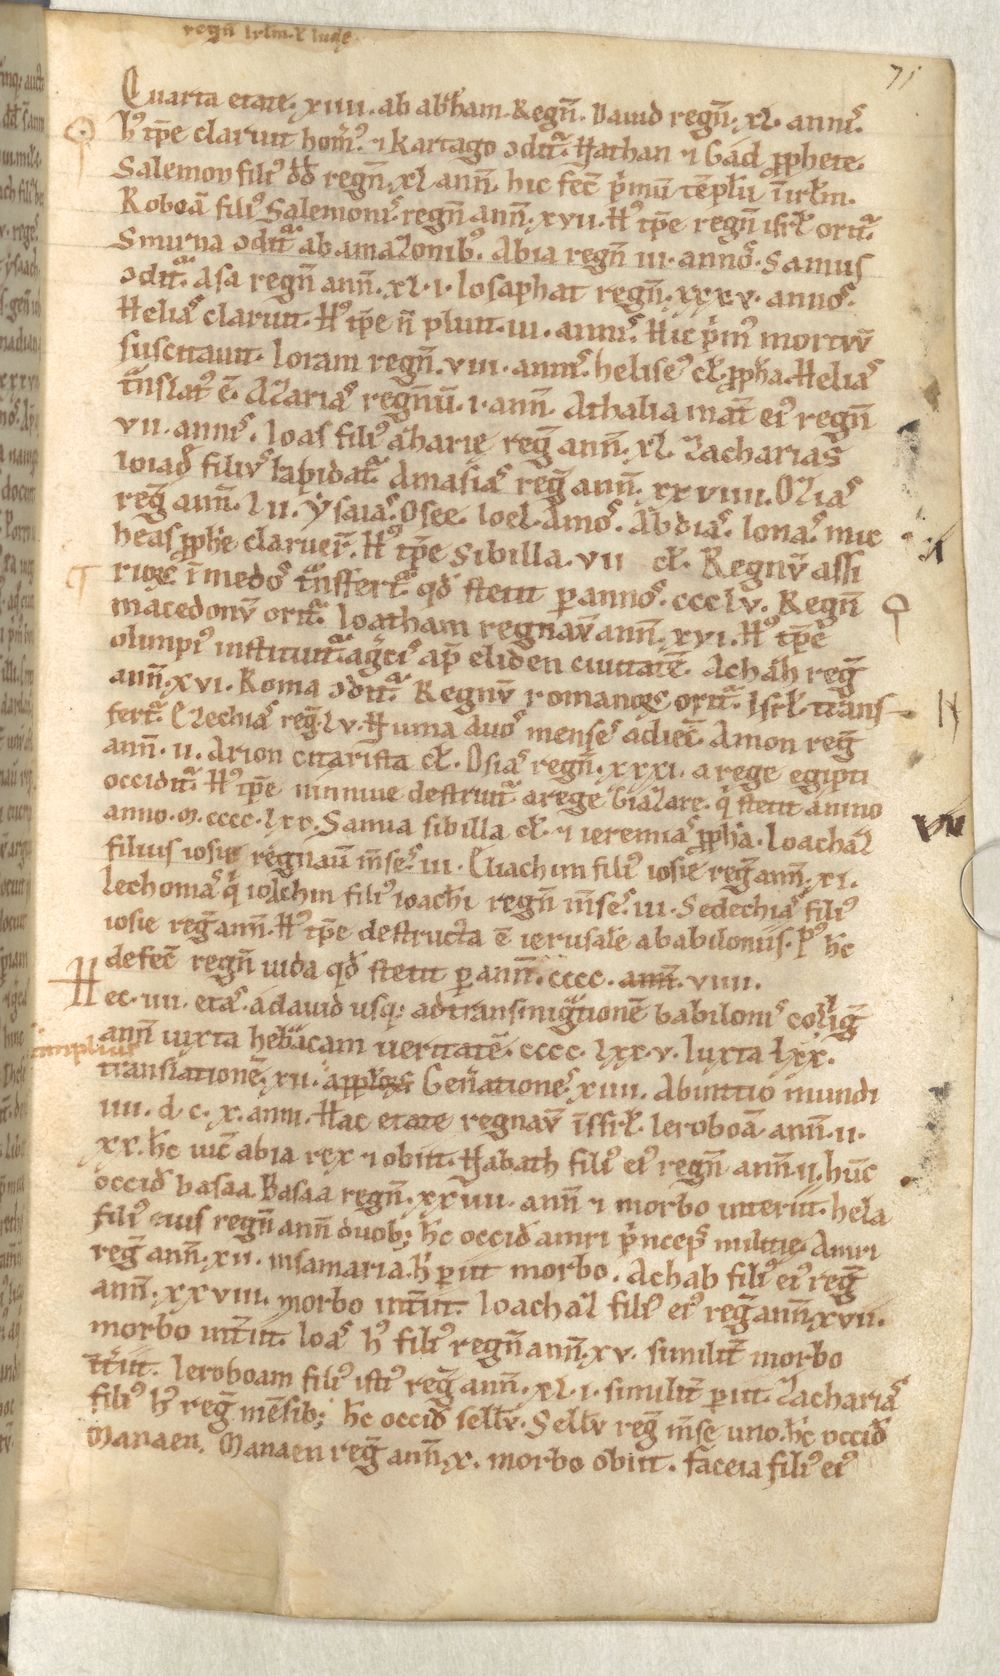 regn̄ irl̄m. ⁊ iudę
71
Quarta etate. xiiii. ab abrͣham. Regn̄. Dauid regn̄. xl. annis.
h' tp̄e claruit hom̄'. ⁊ kartago ↄditᷓ. Nathan ⁊ Gad ꝓphete.
Salemon fili' dd̄ regn̄. xl ann̄. hic fec̄ p̄mū tēplū ī irl̄m.
Roboā fili' Salemonis regn̄ ann̄. xvii. H' tp̄e regn̄ isrl̄ oritᷓ.
Smirna ↄditᷓ ab amazonib'. Abia regn̄ iii. annos. Samus
ↄditᷓ. Asa regn̄ ann̄. xl. i. Iosaphat regn̄. xxxv. annos.
Helias claruit. H' tp̄e n̄ pluit. iii. annis. Hic p̄m' mortuū
suscitauit. Ioram regn̄. viii. annis. helise' cl̄. ꝓph̄a. Helias
tᷓnslat' ē. Azarias regnū. i. ann̄. Athalia mat̄ ei' regn̄
vii. annis. Ioas fili' aharie reḡ ann̄. xl. Zacharias
ioiad̄ filius lapidatᷓ. Amasias reḡ ann̄. xxviiii. Ozias
reḡ ann̄. lii. ysaias. Osee. Ioel. Amos. Abdias. Ionas. mic
heas ꝓph̄e claruer̄. H' tp̄e Sibilla. vii cl̄. Regnū assi
rioꝝ ī medos tᷓnsfertᷓ. qd̄ stetit ꝑ annos. ccclv. Regn̄
macedonū oritᷓ. Ioatham regnaū ann̄. xvi. H' tp̄e
olimpi' instituitᷓ. a gͤcis ap̄ eliden ciuitatē. Achah reḡ
ann̄. xvi. Roma ↄditᷓ. Regnū romanoꝝ oritᷓ. Isrl̄. trans
fertᷓ. Ezechias reḡ. lv. Numa duos menses adiec̄. Amon reḡ
ann̄. ii. Arion citarista cl̄. Osias regn̄. xxxi. a rege egipti
occiditᷓ. H' tp̄e niniue destruitᷓ a rege Giazare. q̄ stetit anno
anno. M. cccc. lxx. Samia sibilla cl̄. ⁊ ieremias ꝓph̄a. Ioachaz
filius iosie regnaū m̄ses iii. Eliachim fili' iosie reḡ ann̄. xi.
Iechonias q̄ ioachin fili' ioachī regn̄ m̄ses. iii. Sedechias fili'
iosie reḡ ann̄. H' tp̄e destructa ē ierusale a babiloniis. P' h̄c
defec̄ regn̄ iuda qd̄ stetit ꝑ ann̄. cccc. ann̄. viiii.
Hec. iiii. etas. a dauid usq; ad transmigᷓtionē babilonis colliḡ
ann̄ iuxta hebᷓicam ueritatē. cccc. lxx. v. Iuxta lxx.
amplius
translationē. xii. Gen̄ationes xiiii. Ab initio mundi
iiii. d c. x. anni. Hac etate regnaū ī isrl̄. Ieroboā ann̄. ii.
xx. h̄c uic̄ abia rex ⁊ obiit. Nabath fili' ei' regn̄ ann̄. ii. hūc
occid̄ basaa. Basaa regn̄. xxiiii. ann̄ ⁊ morbo interiit. hela
fili' eius regn̄ ann̄ duob; h̄c occid̄ amri p̄nceps militie. Amri
reḡ ann̄. xii. in samaria. h̄ ꝑiit morbo. Achab fili' ei' reḡ
ann̄. xxviii. morbo int̄iit. Ioachaz fili' ei' reḡ ann̄ xvii.
morbo int̄iit. Ioas h' fili' regn̄ ann̄. xv. similit̄ morbo
īt̄iit. Ieroboam fili' isti' reḡ ann̄. xl. i. similit̄ ꝑiit. Zacharias
fili' h' reḡ mēsib; h̄c occid̄ sellū. Sellū reḡ m̄se uno. h̄c occid̄
Manaen. Manaen reḡ ann̄. x. morbo obiit. faceia fili' ei'